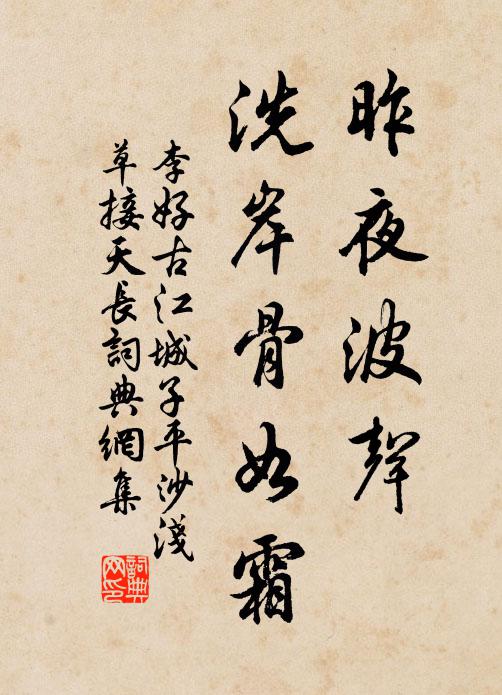 昨夜波聲
洗岸骨如霜
李好古江城子平沙淺
草接天長詞典網集
詞典
网印